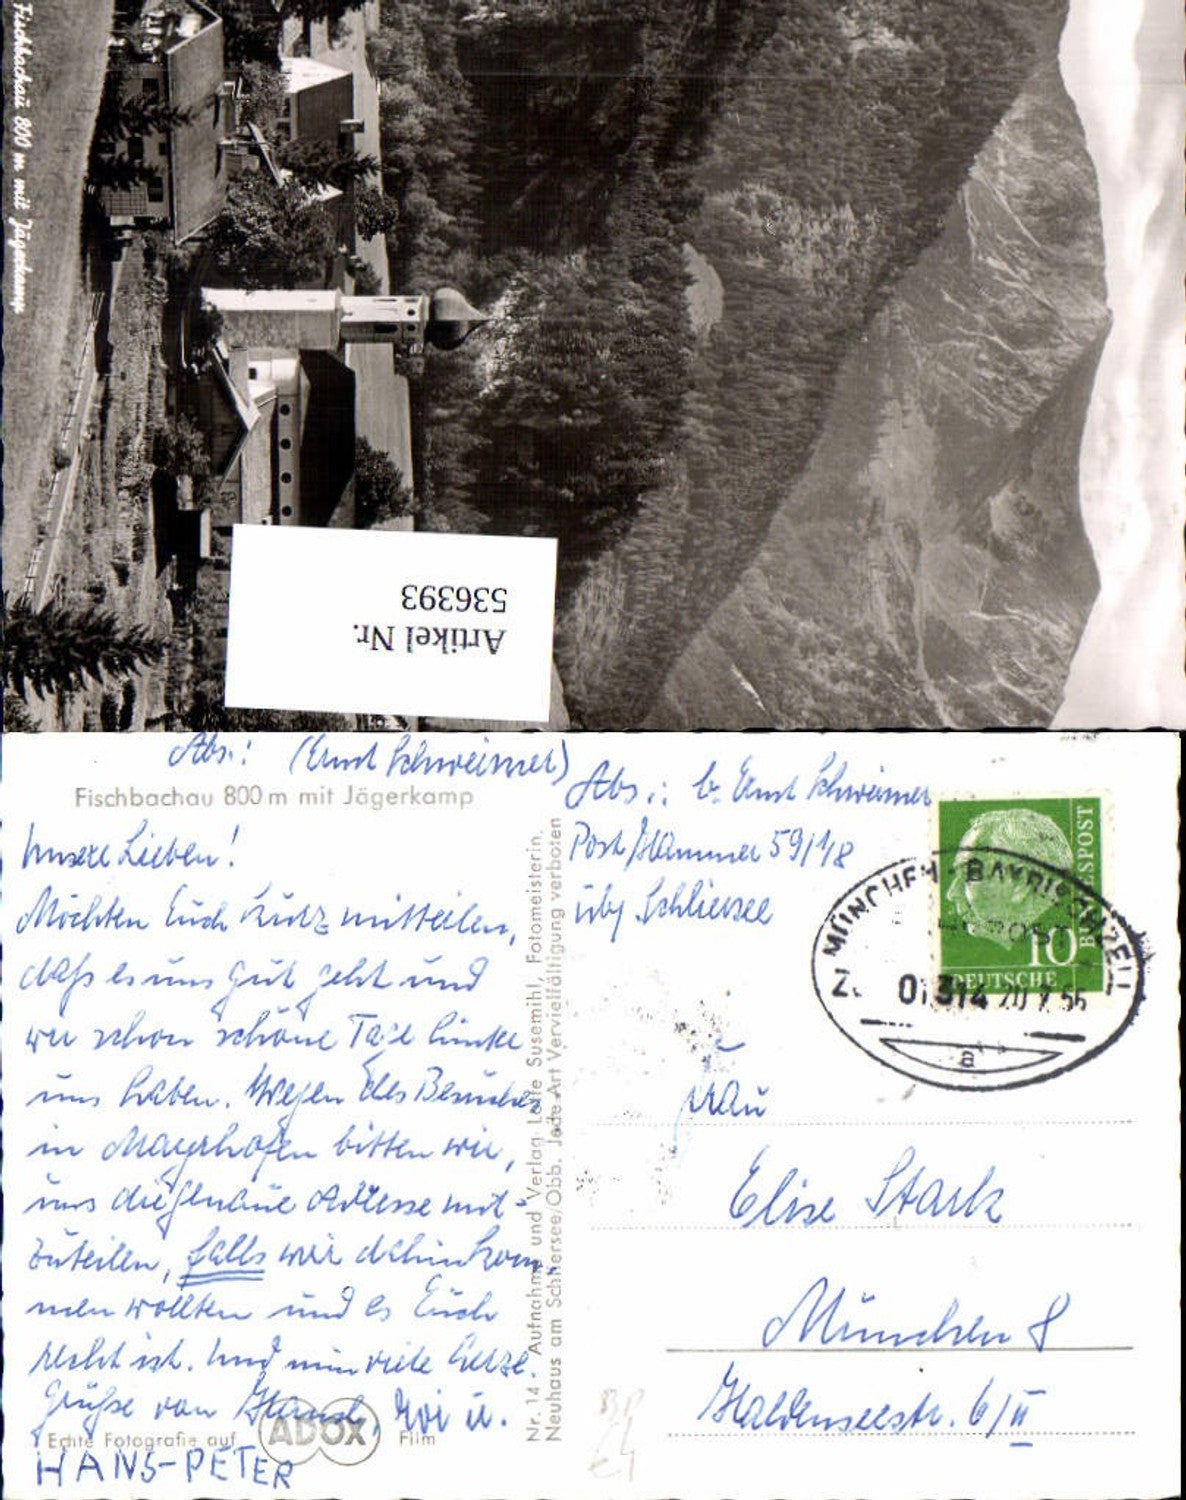 Fischbachau 800 m mit Jägerkamp
Artikel Nr.
536393
Abs.: (Ernst Schweimer)
Fischbachau 800 m mit Jägerkamp
Unsere Lieben!
Möchten Euch kurz mitteilen,
daß es uns gut geht und
wir schon schöne Tage hinter
uns haben. Wegen des Besuches
in Mayrhofen bitten wir,
uns die genaue Adresse mit-
zuteilen, falls wir dahinkom-
men wollten und es Euch
recht ist. Und nun viele herzl.
Grüße von Hansl, Evi u.
HANS-PETER
Echte Fotografie auf ADOX Film
Nr. 14. Aufnahme und Verlag Lotte Susemihl, Fotomeisterin,
Neuhaus am Schliersee/Obb. Jede Art Vervielfältigung verboten
Abs.: b. Ernst Schweimer
Post/Hammer 59 1/8
üby Schliersee
DEUTSCHE BUNDESPOST
10
MÜNCHEN - BAYRISCHZELL
BAHNPOST
Z. 01314 20.7.56
a
Frau
Elise Stark
München 8
Haldenseestr. 6/II